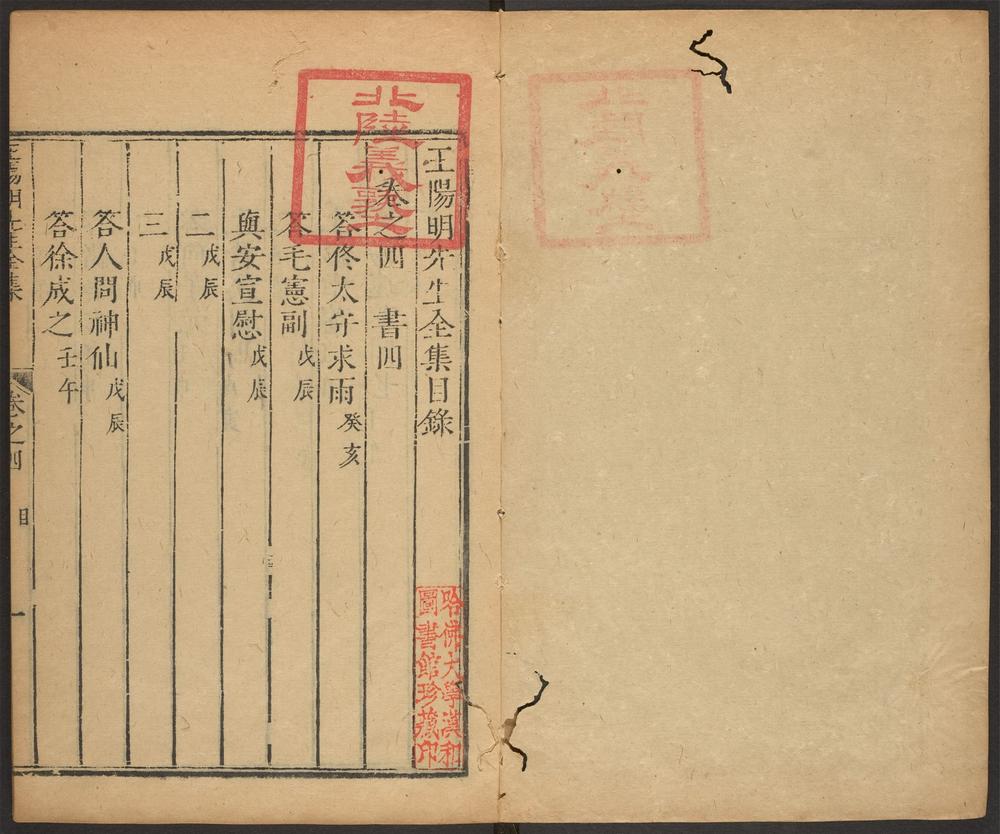 王陽明先生全集目錄
卷之四 書四
答佟太守求雨 癸亥
答毛憲副 戊辰
與安宣慰 戊辰
二 戊辰
三 戊辰
答人問神仙 戊辰
答徐成之 壬午
王陽明先生全集 卷之四 目 一
哈佛大學漢和
圖書館珍藏印
北陸義塾